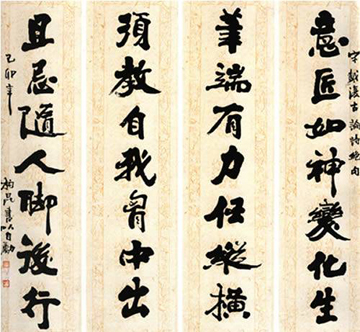 宋戴復古論詩絶句
意匠如神變化生
筆端有力任縱横
須教自我胷中出
且忌隨人脚後行
己卯年
書以自